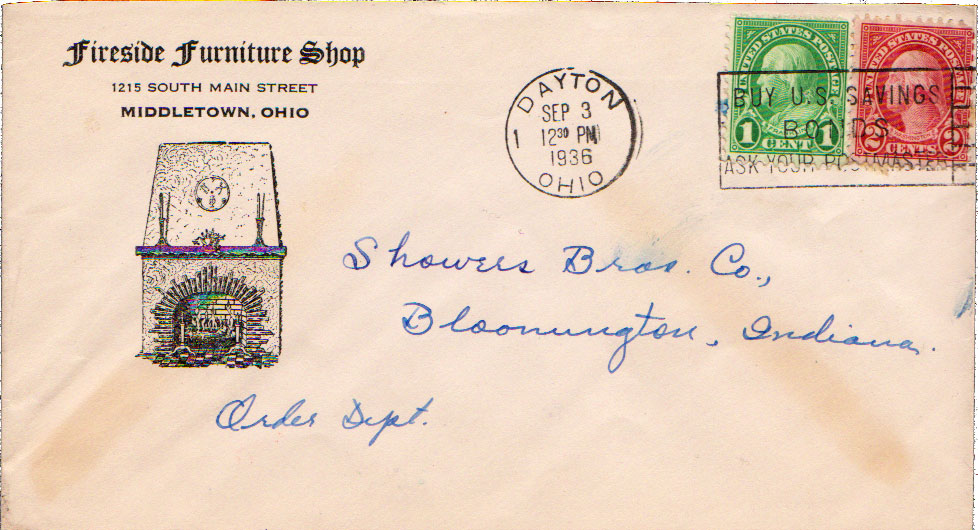 Fireside Furniture Shop
1215 SOUTH MAIN STREET
MIDDLETOWN, OHIO
DAYTON
SEP 3
1 1230 PM
1936
OHIO
UNITED STATES POSTAGE
1 CENT 1
UNITED STATES POSTAGE
2 CENTS 2
BUY U.S. SAVINGS
BONDS
ASK YOUR POSTMASTER
Showers Bros. Co.,
Bloomington, Indiana.
Order Dept.